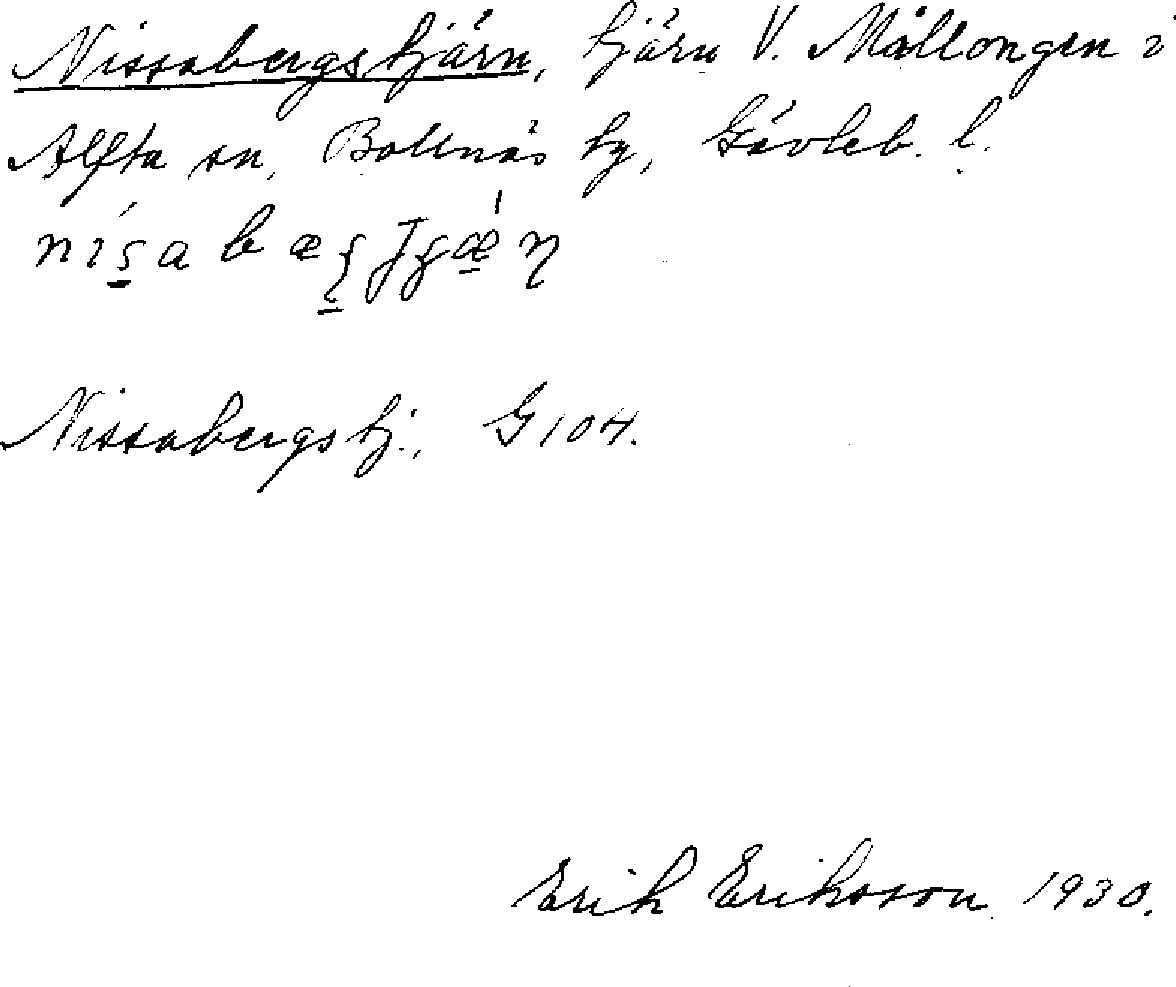 Nissabergstjärn, tjärn V. Mållongen i
Alfta sn, Bollnäs tg, Gävleb. l.
Nissabergstj., G 104.
Erik Eriksson 1930.